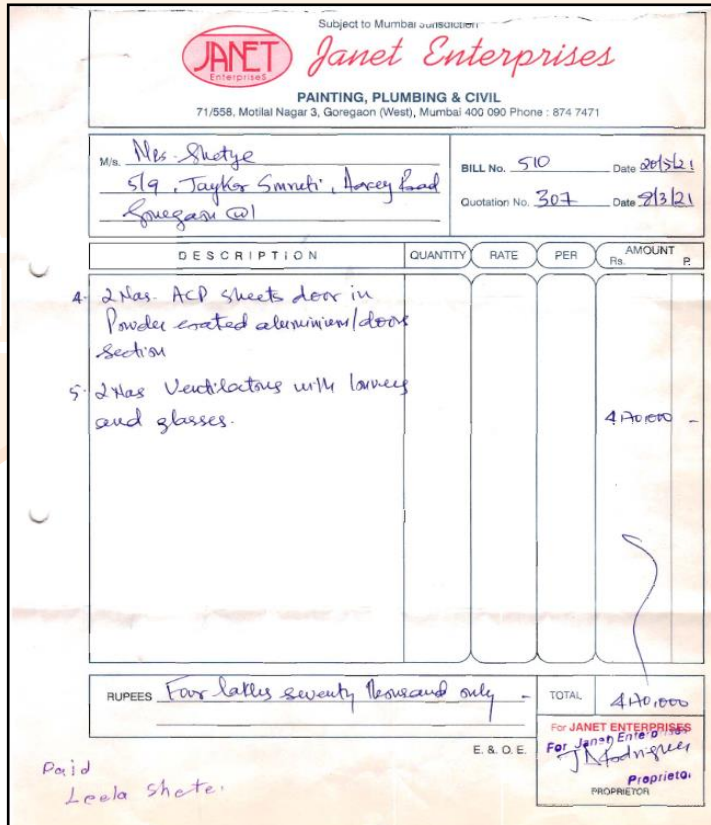 Subject to Mumbai Jurisdiction
JANET
EnterpriseS
Janet Enterprises
PAINTING, PLUMBING & CIVIL
71/558, Motilal Nagar 3, Goregaon (West), Mumbai 400 090 Phone : 874 7471
M/s. Mrs. Shetye
BILL No. 510 Date 20/5/21
5/9, Smruti, Road
Quotation No. 307 Date 8/3/21
Goregaon (W)
DESCRIPTION QUANTITY RATE PER AMOUNT
Rs. P.
4. 2 Nos. ACP Sheets door in
Powder coated aluminium/door
Section
5. 2 Nos Ventilators with louvers
and glasses. 4,70,000 -
RUPEES Four lakhs seventy thousand only - TOTAL 4,70,000
For JANET ENTERPRISES
E. & O. E. For Janet Enterprises
Proprietor
PROPRIETOR
Paid
Leela Shete.